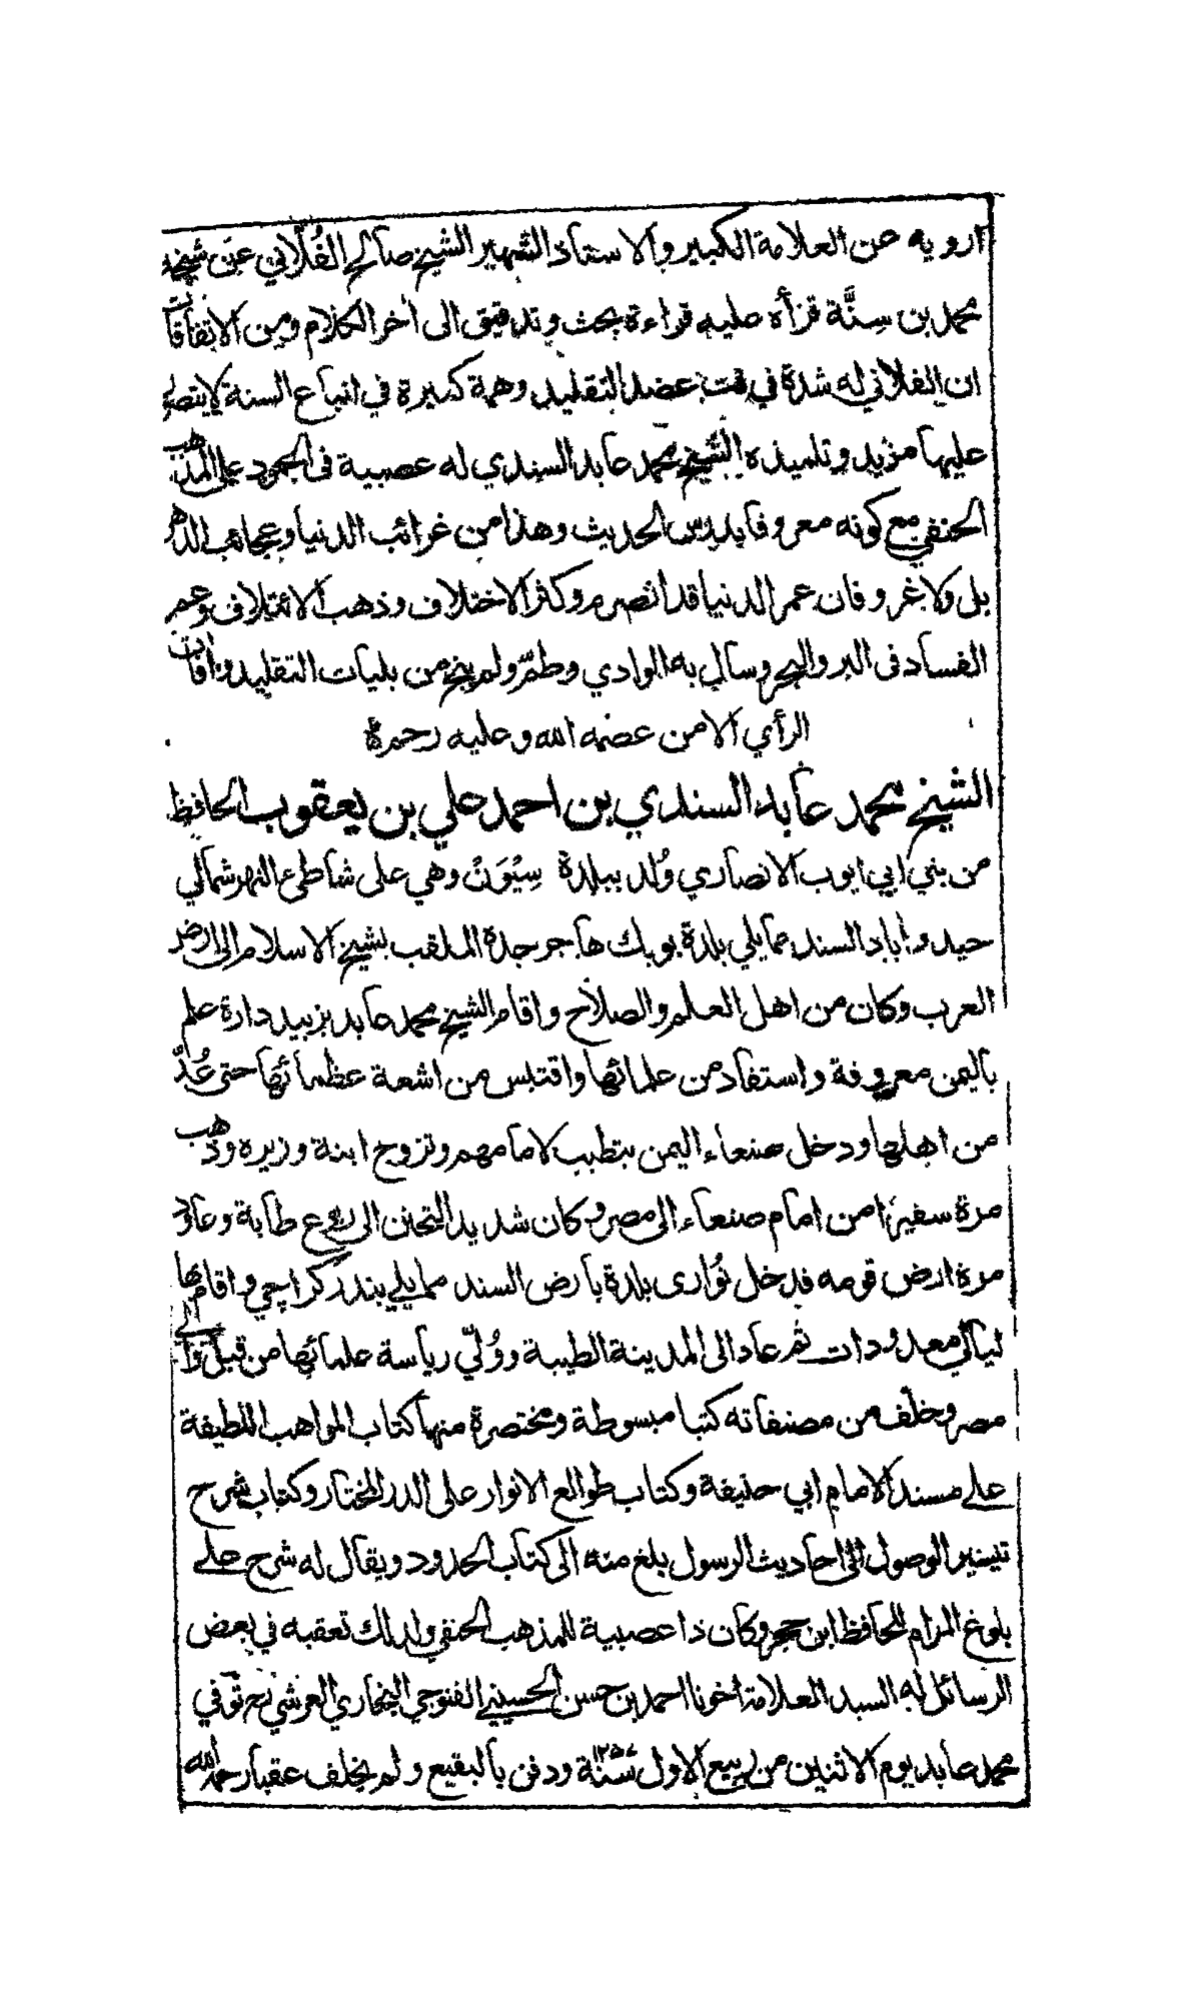 ارويه عن العلامة الكبير والاستاذ الشهير الشيخ صالح الفُلّاني عن شيخه
محمد بن سِنَّة قرأه عليه قراءة بحث وتدقيق الى أخر الكلام ومن الاتفاقات
ان الفلاني له شدة في فت عضد التقليد وهمة كبيرة في اتباع السنة لا يتصور
عليها مزيد وتلميذه الشيخ محمد عابد السندي له عصبية فى الجمود على المذهب
الحنفي مع كونه معروفا بدرس الحديث وهذا من غرائب الدنيا وعجائب الدهر
بل ولا غرو فان عمر الدنيا قد انصرم وكثر الاختلاف وذهب الائتلاف وعم
الفساد فى البر والبحر وسال به الوادي وطمّ ولم ينج من بليات التقليد وافات
الرأي الا من عصمه الله وعليه رحمة
الشيخ محمد عابد السندي بن احمد علي بن يعقوب الحافظ
من بني ابي ايوب الانصاري وُلد ببلدة سِيْوَنْ وهي على شاطئ النهر شمالي
حيدر اباد السند مما يلي بلدة بوبك هاجر جده الملقب بشيخ الاسلام الى ارض
العرب وكان من اهل العلم والصلاح واقام الشيخ محمد عابد بزبيد دارة علم
باليمن معروفة واستفاد من علمائها واقتبس من اشعة عظمائها حتى عُدّ
من اهلها ودخل صنعاء اليمن يتطبب لامامهم وتزوج ابنة وزيره وذهب
مرة سفيرًا من امام صنعاء الى مصر وكان شديد التحنن الى ربوع طابة وعاود
مرة ارض قومه فدخل نُوارى بلدة بارض السند مما يلي بندر كراچي واقام بها
ليالي معدودات ثم عاد الى المدينة الطيبة ووُلّي رياسة علمائها من قبل والي
مصر وخلف من مصنفاته كتبا مبسوطة ومختصرة منها كتاب المواهب اللطيفة
على مسند الامام ابي حنيفة وكتاب طوالع الانوار على الدر المختار وكتاب شرح
تيسير الوصول الى احاديث الرسول بلغ منه الى كتاب الحدود ويقال له شرح على
بلوغ المرام للحافظ ابن حجر وكان ذا عصبية للمذهب الحنفي ولذلك تعقبه في بعض
الرسائل له السيد العلامة اخونا احمد بن حسن الحسيني القنوجي البخاري العرشي رح توفي
محمد عابد يوم الاثنين من ربيع الاول سنة ١٢٥٧ ودفن بالبقيع ولم يخلف عقبا رحمه الله